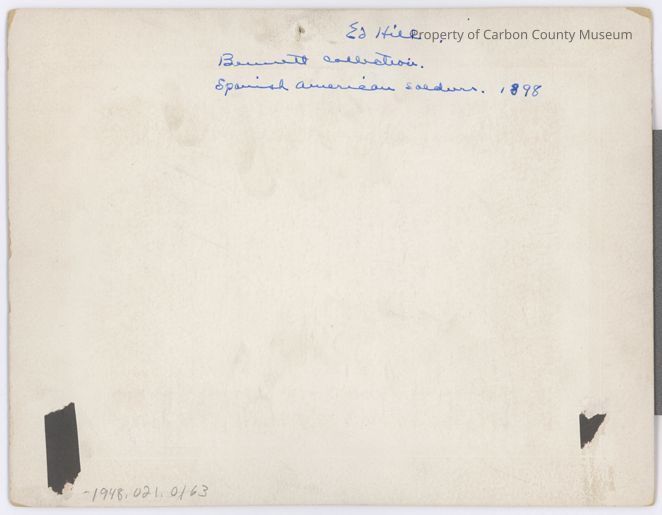 Ed Hill
Property of Carbon County Museum
Bennett collection.
Spanish American soldiers. 1898
-1948.021.0163